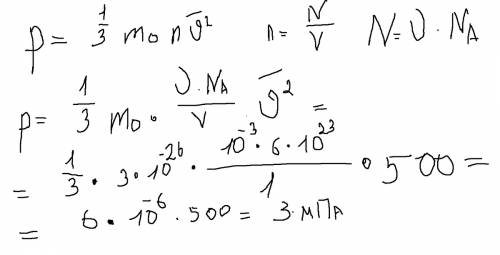 p = 1/3 m₀ n ϑ̅² n = N/V N = ν · Nₐ
p = 1/3 m₀ · ν · Nₐ/V · ϑ̅² =
= 1/3 · 3 · 10⁻²⁶ · 10⁻³ · 6 · 10²³/1 · 500 =
= 6 · 10⁻⁶ · 500 = 3 · мПа